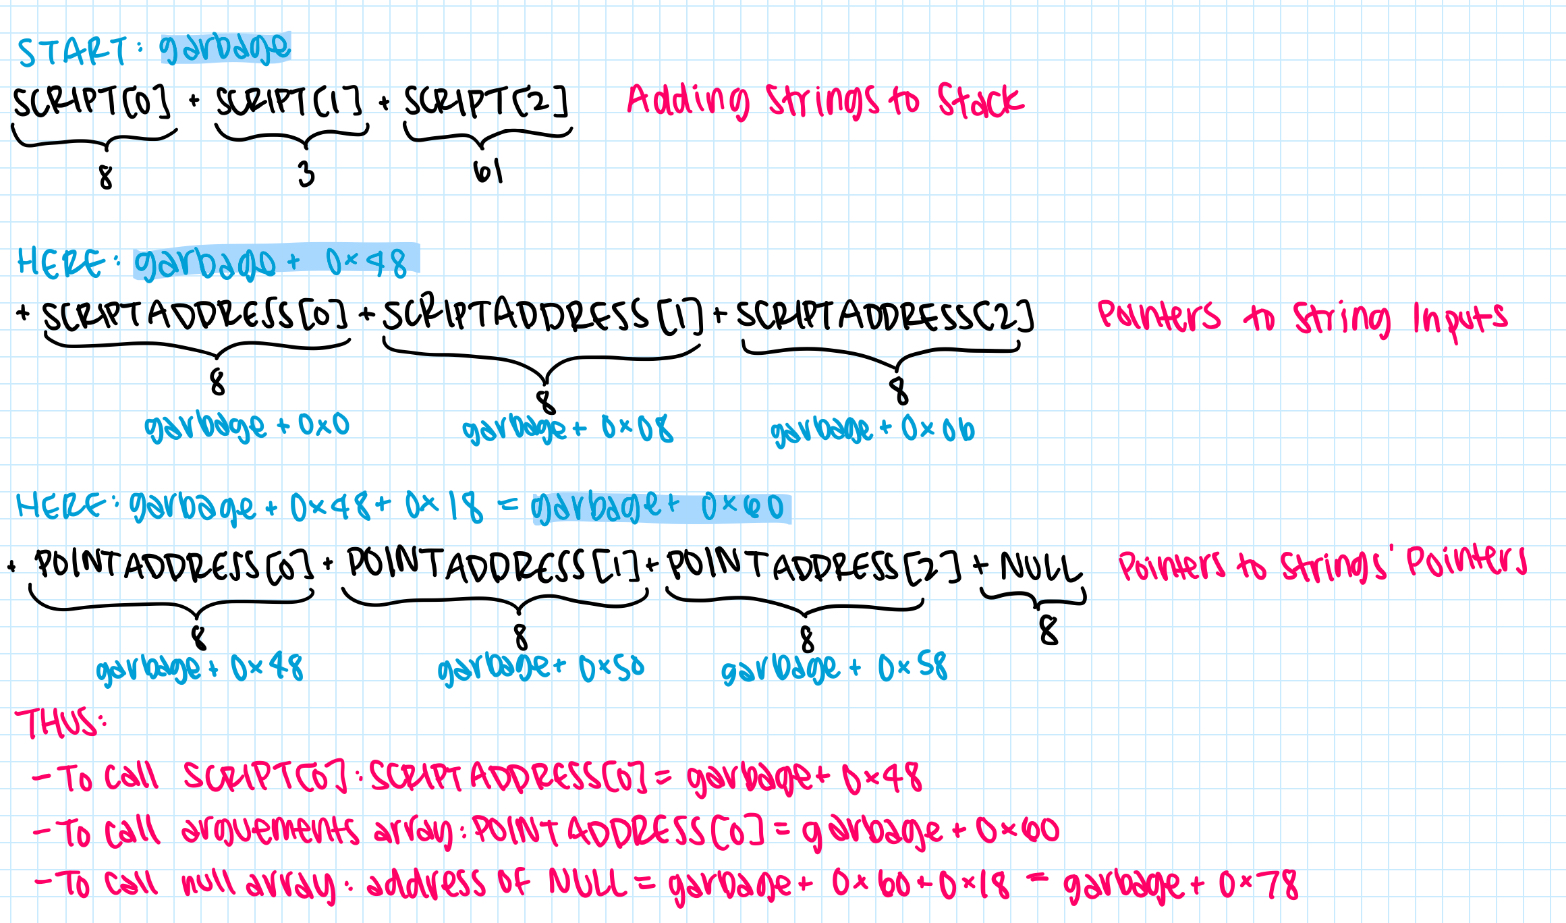 START: garbage
SCRIPT[0] + SCRIPT[1] + SCRIPT[2] Adding Strings to Stack
8 3 61
HERE: garbage + 0x48
+ SCRIPTADDRESS[0] + SCRIPTADDRESS[1] + SCRIPTADDRESS[2] Pointers to String Inputs
8 8 8
garbage + 0x0 garbage + 0x08 garbage + 0x0b
HERE: garbage + 0x48 + 0x18 = garbage + 0x60
+ POINTADDRESS[0] + POINTADDRESS[1] + POINTADDRESS[2] + NULL Pointers to Strings' Pointers
8 8 8 8
garbage + 0x48 garbage + 0x50 garbage + 0x58
THUS:
- To call SCRIPT[0]: SCRIPTADDRESS[0] = garbage + 0x48
- To call arguements array: POINTADDRESS[0] = garbage + 0x60
- To call null array: address of NULL = garbage + 0x60 + 0x18 = garbage + 0x78